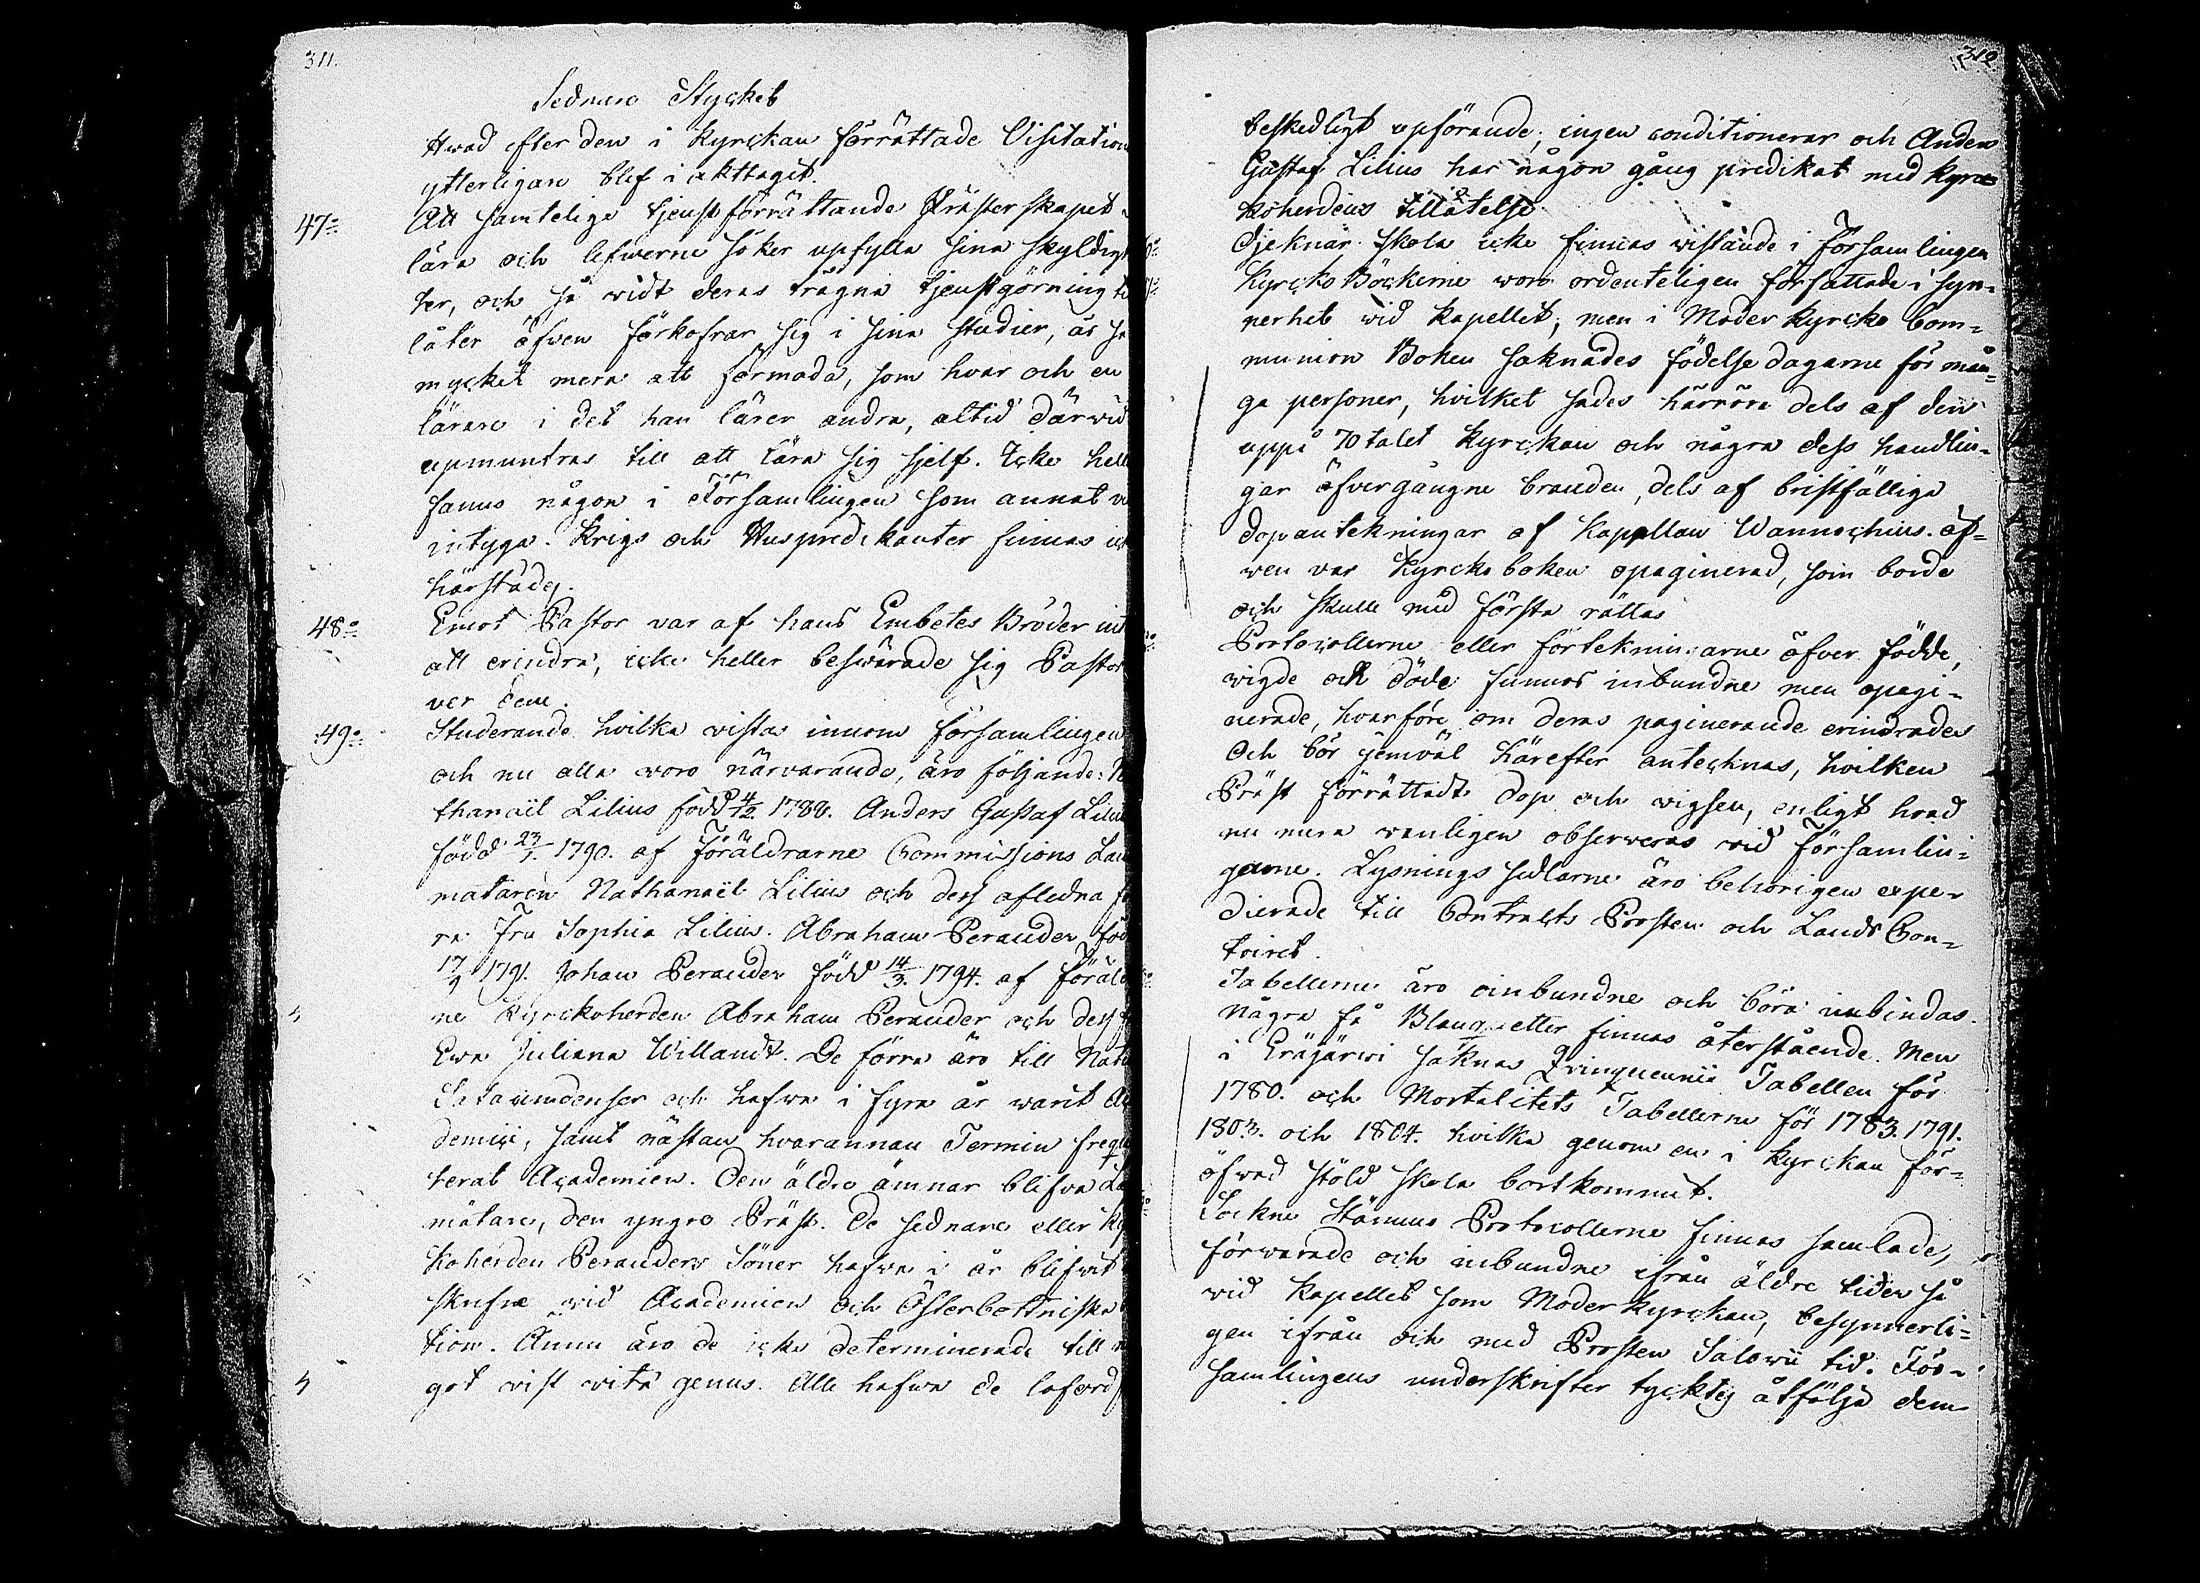 311.
Sednare Stycket
Hvad efter den i Kyrckan förrättade Visitation
ytterligare blef i akttagit.
47=o Att samtelige tjenstförrättande Prästerskapet
lära och lefwerne söker upfylla sina skyldig
ter, och så widt deras trägna tjenstgörning
låter äfven förkofrar sig i sina studier, är
mycket mera att förmoda, som hvar och en
lärare i det han lärer andra, altid därwid
upmuntras till att lära sig sjelf. Icke hell
fanns någon i Församlingen som annat
intyga. Krigs och Huspredikanter finnas
härstädes.
48=o Emot Pastor var af hans Embetes Bröder int
att erindra, icke heller beswärade sig Pastor
ver dem.
49=o Studerande hvilka vistas innom församlingen
och nu alla woro närvarande, äro följande: 
thanaël Lilius född 4/12 1788. Anders Gustaf Liliu
född 23/1. 1790. af Föräldrarne Commissions Lan
mätaren Nathanaël Lilius och dess afledna
ra Fru Sophia Lilius. Abraham Perander föd
1791. Johan Perander född 14/3. 1794. af Föräld
ne Kyrckoherden Abraham Perander och dess
Ewa Juliana Willandt. De förra äro till Nat
Satacundenser och hafwa i fyra år warit
demici, samt nästan hvarannan Termin freq
terat Academien. Den äldre ämnar blifva
mätare, den yngre Präst. De sednare eller
koherden Peranders Söner hafwa i år blifvit
skrifne wid Academien och Österbottniska
tion. Ännu äro de icke determinerade till
got vist vitæ genus. Alla hafwa de loford
312
beskedligt upförande; ingen conditionerar och Anders
Gustaf Lilius har någon gång predikat med Kyrc
koherdens tillåtelse.
Djeknar skola icke finnas vistande i Församlingen
Kyrcko Böckerne woro ordenteligen författade i syn=
nerhet wid Kapellet; men i Moder kyrcko Com=
munion Boken saknades födelse dagarne för mån=
ga personer, hvilket sades härröra dels af den
uppå 70 talet Kyrckan och några dess handlin=
gar öfvergångne branden, dels af bristfällige
dop antekningar af Kapellan Wannochius. äf=
wen var Kyrcko boken opaginerad, som borde
och skulle med första rättas
Protocollerne eller förtekningarne öfver födde,
wigde och döde funnos inbundne men opagi=
nerade, hvarföre om deras paginerande erindrades
Och bör jemväl härefter antecknas, hvilken
Präst förrättadt dop och wigsen, enligt hvad
nu mera wanligen observeras vid Församlin=
garne. Lysnings sedlarne äro behörigen expe=
dierade till Contracts Prosten och Lands Con=
toiret.
Tabellerne äro oinbundne och böra inbindas.
Några få Blanquetter finnas återstående. Men
i Eräjärwi saknas Quinquennii Tabellen för
1780. och Mortalitets Tabellerna för 1783. 1791.
1803. och 1804. hvilka genom en i Kyrckan för=
öfvad stöld skola bortkommit.
Sockne Stämmo Protocollerne finnas samlade,
förwarade och inbundne ifrån äldre tider så
vid Kapellet som Moderkyrckan, besynnerli=
gen ifrån och med Prosten Salovii tid. För=
samlingens underskrifter tycktes åtfölja dem